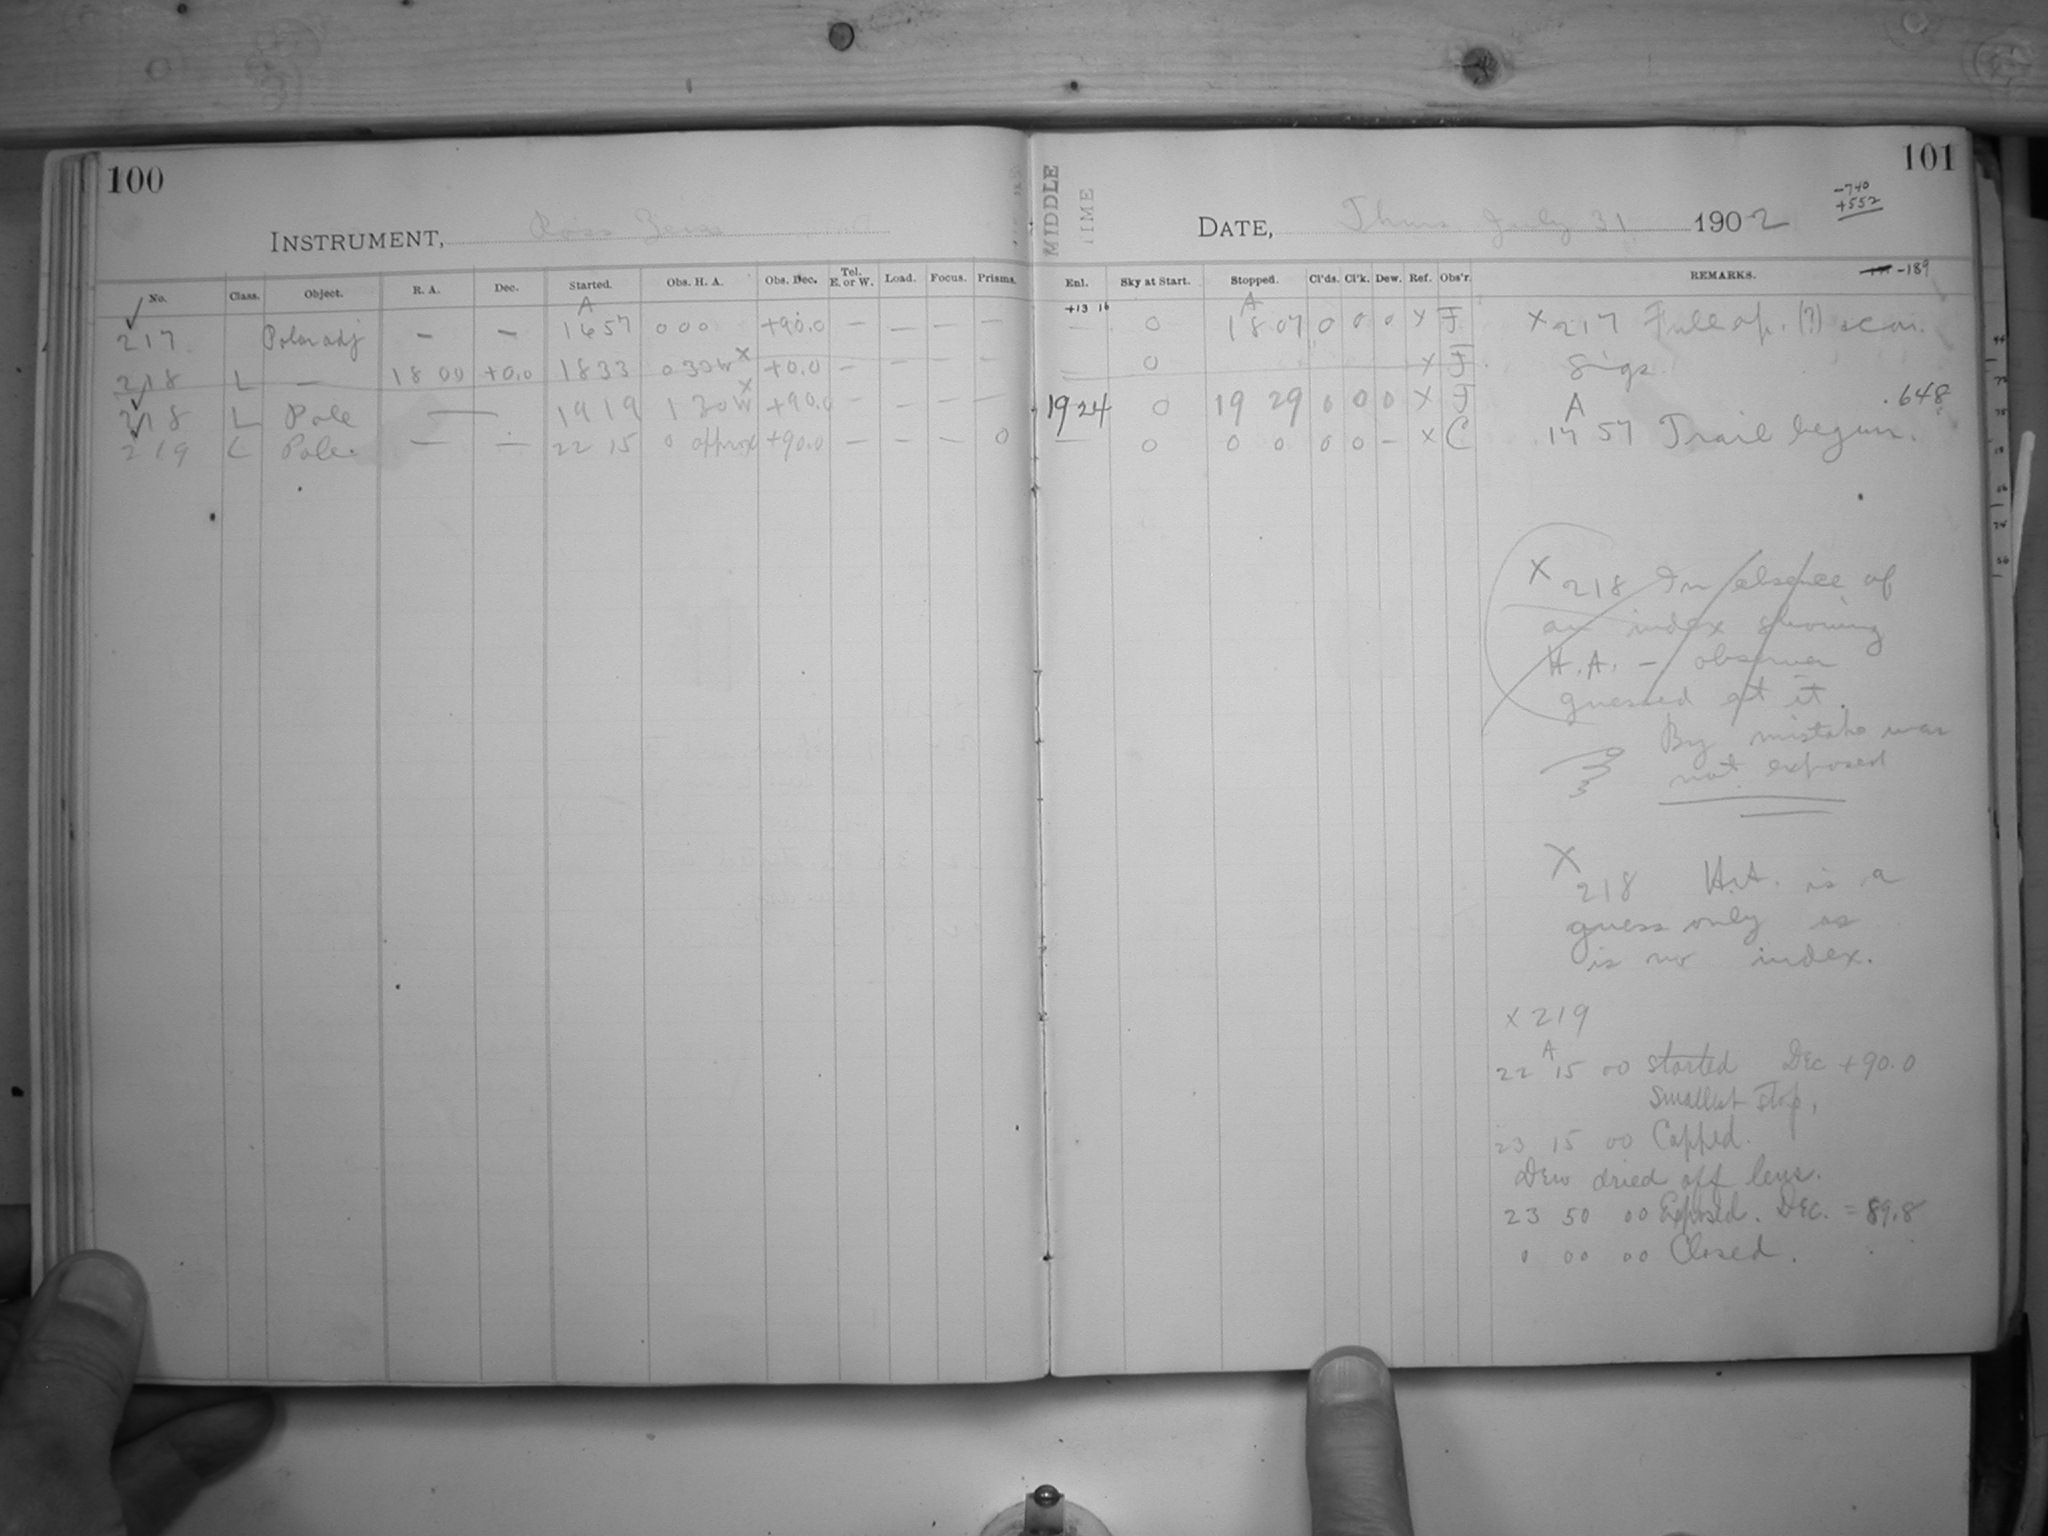 100
INSTRUMENT, Ross Zeiss
No. Class. Object. R. A. Dec. Started. Obs. H. A. Obs. Dec. Tel. E. or W. Load. Focus. Prisms.
A
217 Polar adj — — 16 57 0 00 +90.0 — — — —
218 L — 18 00 +0.0 1833 0 30 W x +0.0 — — — —
218 L Pole — 19 19 1 30 W x +90.0 — — — —
219 L Pole. — — 22 15 0 approx +90.0 — — — 0
MIDDLE TIME
101
-740
+552
DATE, Thurs July 31 1902
-189
Enl. Sky at Start. Stopped. Cl'ds. Cl'k. Dew. Ref. Obs'r. REMARKS.
+13 16
A
— 0 18 07 0 0 0 x F. x 217 Full ap. (?)
— 0 x F. sigs
19 24 0 19 29 0 0 0 x F A .648
— 0 0 0 0 0 — x C 17 57 Trail begun.
x 218 In absence of
an index showing
H.A. — observer
guessed at it.
By mistake was
not exposed
x
218 H.A. is a
guess only as
is no index.
x 219
A
22 15 00 started Dec +90.0
Smallest stop,
23 15 00 Capped.
Dew dried off lens.
23 50 00 Exposed. Dec. = 89.8
0 00 00 Closed.